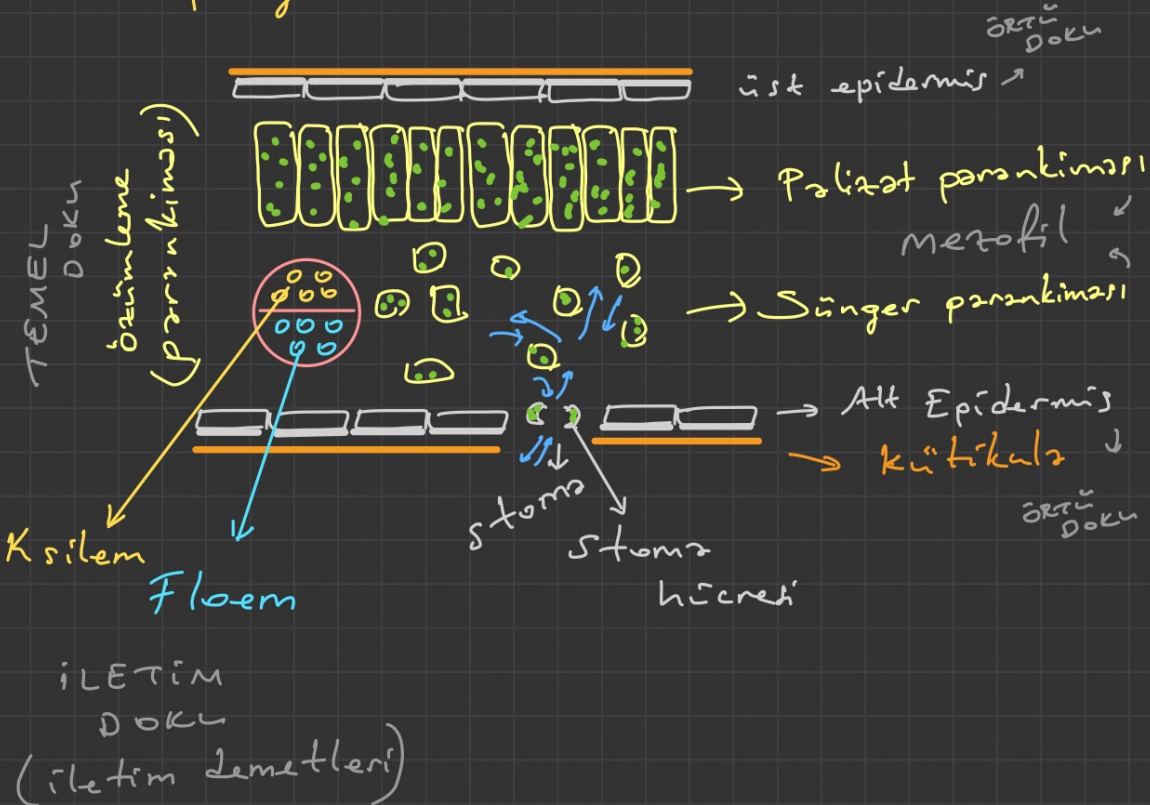 ÖRTÜ
DOKU
üst epidermis
TEMEL
DOKU
özümleme
(parankiması)
Palizat parankiması
mezofil
Sünger parankiması
Alt Epidermis
kütikula
ÖRTÜ
DOKU
stoma
Stoma
hücresi
Ksilem
Floem
İLETİM
DOKU
(iletim demetleri)